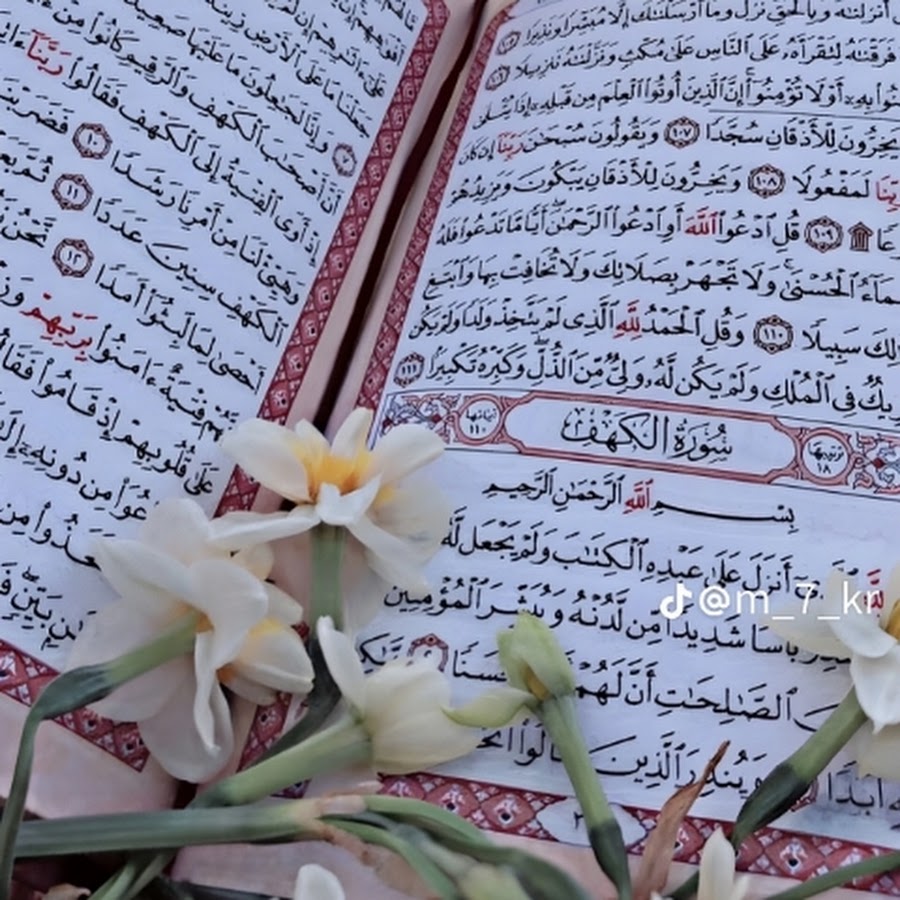 أَنزَلْنَٰهُ وَبِٱلْحَقِّ نَزَلَ وَمَآ أَرْسَلْنَٰكَ إِلَّا مُبَشِّرًا وَنَذِيرًا ١٠٥
فَرَقْنَٰهُ لِتَقْرَأَهُۥ عَلَى ٱلنَّاسِ عَلَىٰ مُكْثٍ وَنَزَّلْنَٰهُ تَنزِيلًا ١٠٦
بِهِۦٓ أَوْ لَا تُؤْمِنُوٓا۟ إِنَّ ٱلَّذِينَ أُوتُوا۟ ٱلْعِلْمَ مِن قَبْلِهِۦٓ إِذَا يُتْلَىٰ
يَخِرُّونَ لِلْأَذْقَانِ سُجَّدًا ١٠٧ وَيَقُولُونَ سُبْحَٰنَ رَبِّنَآ إِن كَانَ
لَمَفْعُولًا ١٠٨ وَيَخِرُّونَ لِلْأَذْقَانِ يَبْكُونَ وَيَزِيدُهُمْ
۩ ١٠٩ قُلِ ٱدْعُوا۟ ٱللَّهَ أَوِ ٱدْعُوا۟ ٱلرَّحْمَٰنَ أَيًّا مَّا تَدْعُوا۟ فَلَهُ
ٱلْحُسْنَىٰ وَلَا تَجْهَرْ بِصَلَاتِكَ وَلَا تُخَافِتْ بِهَا وَٱبْتَغِ
سَبِيلًا ١١٠ وَقُلِ ٱلْحَمْدُ لِلَّهِ ٱلَّذِى لَمْ يَتَّخِذْ وَلَدًا وَلَمْ يَكُن
فِى ٱلْمُلْكِ وَلَمْ يَكُن لَّهُۥ وَلِىٌّ مِّنَ ٱلذُّلِّ وَكَبِّرْهُ تَكْبِيرًا ١١١
ترتيبها ١٨ سُورَةُ الكَهْفِ آياتها ١١٠
بِسْمِ ٱللَّهِ ٱلرَّحْمَٰنِ ٱلرَّحِيمِ
أَنزَلَ عَلَىٰ عَبْدِهِ ٱلْكِتَٰبَ وَلَمْ يَجْعَل لَّهُ
شَدِيدًا مِّن لَّدُنْهُ وَيُبَشِّرَ ٱلْمُؤْمِنِينَ
ٱلصَّٰلِحَٰتِ أَنَّ لَهُمْ حَسَنًا
أَبَدًا وَيُنذِرَ ٱلَّذِينَ قَالُوا۟
عَلَىٰٓ ءَاثَٰرِهِمْ إِن
جَعَلْنَا مَا عَلَى ٱلْأَرْضِ زِينَةً
وَإِنَّا لَجَٰعِلُونَ مَا عَلَيْهَا صَعِيدًا
أَنَّ أَصْحَٰبَ ٱلْكَهْفِ وَٱلرَّقِيمِ كَانُوا۟ مِنْ
إِذْ أَوَى ٱلْفِتْيَةُ إِلَى ٱلْكَهْفِ فَقَالُوا۟ رَبَّنَآ
وَهَيِّئْ لَنَا مِنْ أَمْرِنَا رَشَدًا ١٠ فَضَرَبْنَا
ٱلْكَهْفِ سِنِينَ عَدَدًا ١١ ثُمَّ
أَحْصَىٰ لِمَا لَبِثُوٓا۟ أَمَدًا ١٢ نَّحْنُ
فِتْيَةٌ ءَامَنُوا۟ بِرَبِّهِمْ
عَلَىٰ قُلُوبِهِمْ إِذْ قَامُوا۟
مِن دُونِهِۦٓ
@m_7_kr